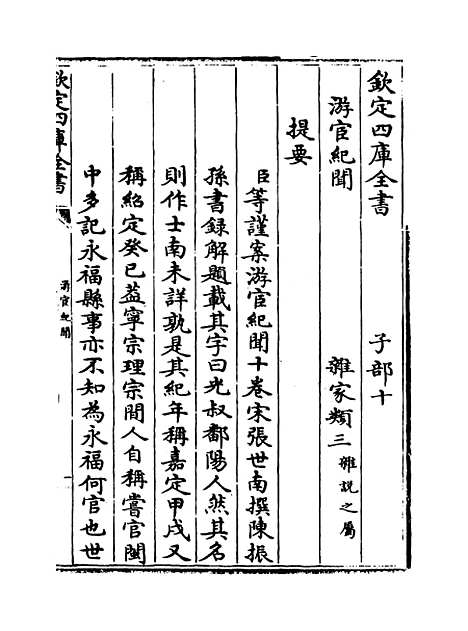 欽定四庫全書 子部十
游宦紀聞 雜家類三雜說之屬
提要
臣等謹案游宦紀聞十卷宋張世南撰陳振
孫書録解題載其字曰光叔鄱陽人然其名
則作士南未詳孰是其紀年稱嘉定甲戌又
稱紹定癸巳葢寧宗理宗間人自稱嘗官閩
中多記永福縣事亦不知為永福何官也世
欽定四庫全書
游宦紀聞
一